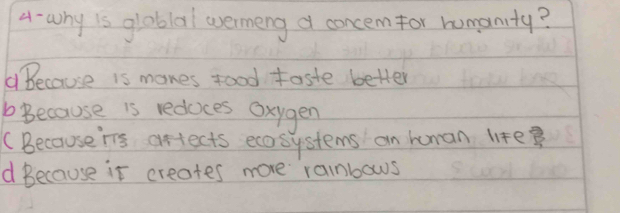 4-Why is globlal wermeng a concern for humanity?
a Because is mares food taste better
b Because is reduces oxygen
c Because it's affects ecosystems an human life
d Because it creates more rainbows